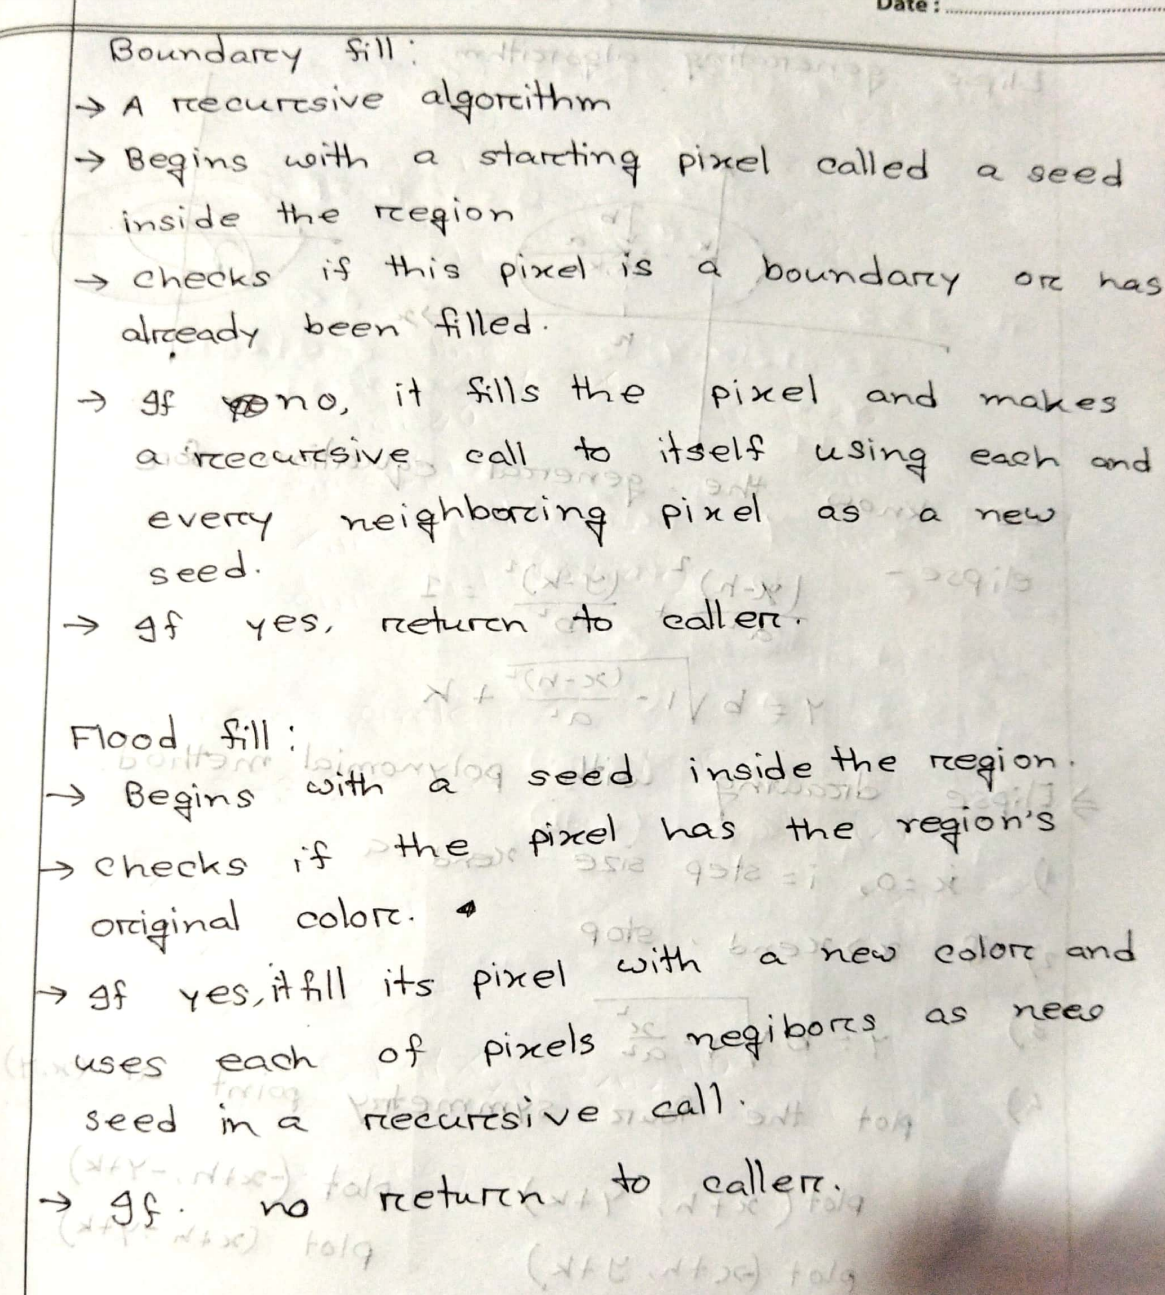 Date :
Boundary fill :
→ A recursive algorithm
→ Begins with a starting pixel called a seed
inside the region
→ checks if this pixel is a boundary or has
already been filled.
→ If no, it fills the pixel and makes
a recursive call to itself using each and
every neighboring pixel as a new
seed.
→ If yes, return to caller.
Flood fill :
→ Begins with a seed inside the region.
→ checks if the pixel has the region's
original color.
→ If yes, it fill its pixel with a new color and
uses each of pixels negibors as new
seed in a recursive call.
→ If. no return to caller.